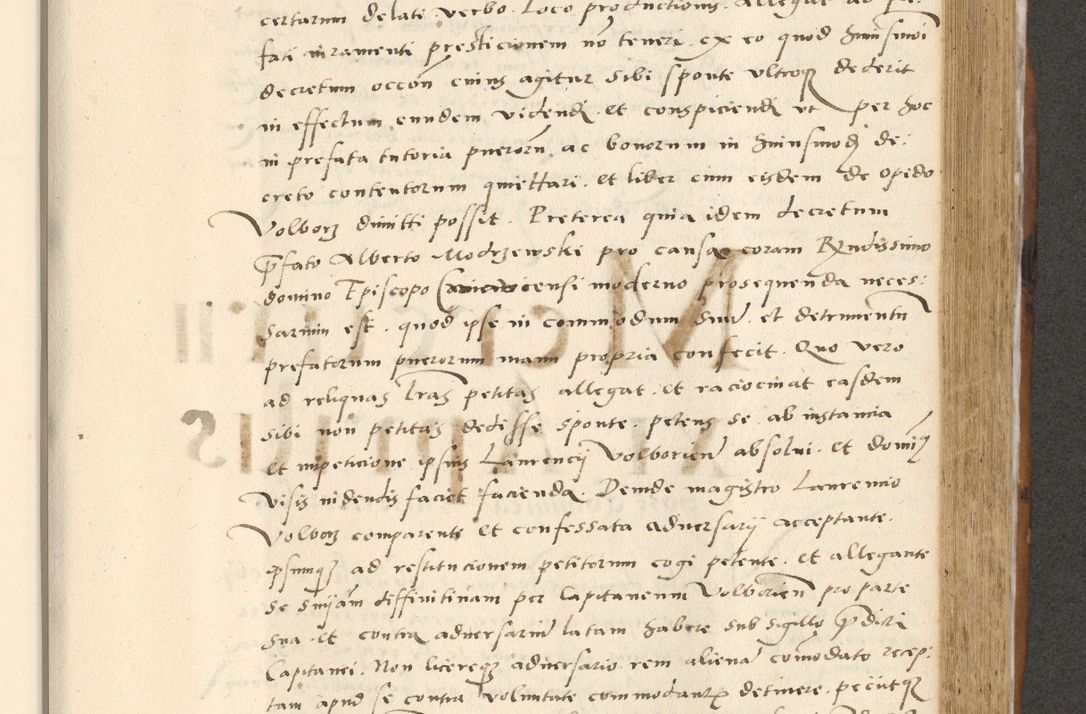 certarum delate verbo. Loco productionis. Allegat ad
fati iuramenti presticionem nō teneri. ex eo quod huiusmōi
decretum occōn cuius agitur sibi sponte vltroq dederit
in effectum eundem videndj. et conspiciendj vt per hoc
in prefata tutoria puerorū, ac bonorum in huiusmodj de:
creto contentorum quiettari. et liber cum eisdem de opido
Volborz dimitti possit. Preterea quia idem decretum
p̄fato Alberto Modrzewski pro causa coram Rx̄ndissimo
domino Episcopo censi moderno prosequenda neces:
sarium est. quod ipse in commodum suū et detrimentū
prefatorum puerorum manu propria confecit. Quo vero
ad reliquas l̄ras petitas allegat. et raciocinat easdem
sibi non petitas dedisse sponte. petens se ab instancia
et impeticione ipsius Laurencij Volborien̄ absolui. et
visis videndis faciet facienda. Deinde magistro Laurencio
Volborz comparente et confessata aduersarij acceptante.
ipsumq ad restitucionem petitorum cogi petente. et allegante
se sn̄iam diffinitiuam per Capitaneum Volborien̄ pro parte
sua. et contra aduersariū latam habere sub sigillo p̄dicti
Capitanei. Non licereq aduersario rem alienā comōdato recep:
tam apud se contra voluntate commodantꝭ detinere. petiitq